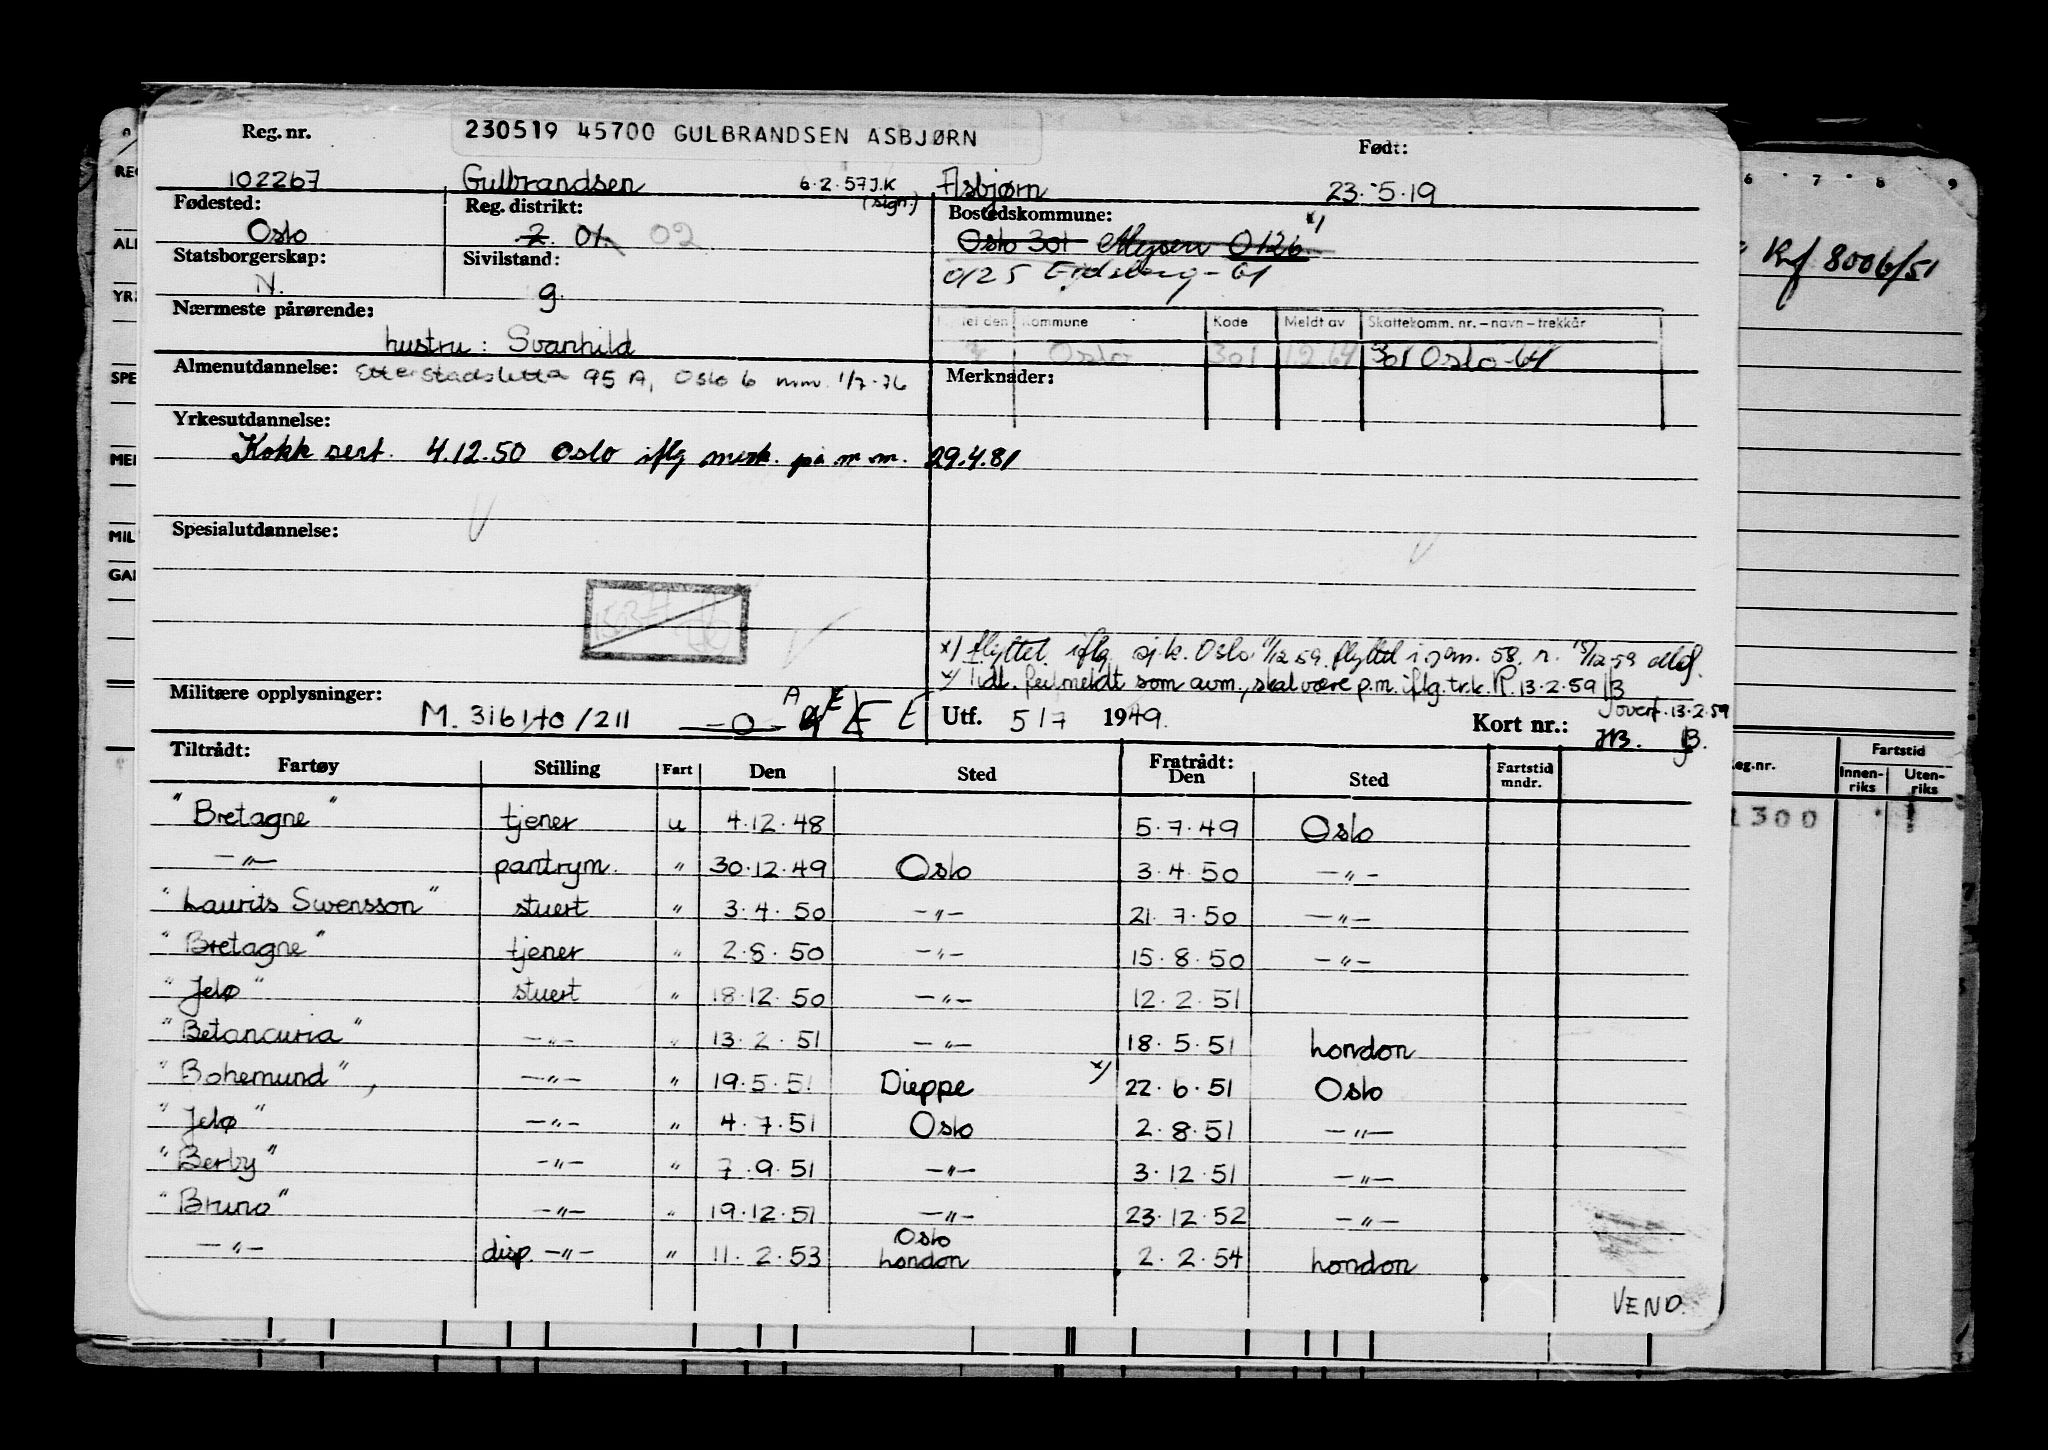 Reg. nr. 230519 45700 GULBRANDSEN ASBJØRN Født:
102267 Gulbrandsen 6.2.57 J.K (sign.) Asbjørn 23.5.19
Fødested: Reg. distrikt: Bostedskommune:
Oslo 2. 01. 02 Oslo 301 Mysen 0126 x)
Statsborgerskap: Sivilstand: 0125 Eidsberg-61
N. g.
Nærmeste pårørende: et den Kommune Kode Meldt av Skattekomm. nr. – navn – trekkår
hustru: Svanhild Oslo 301 12.64 301 Oslo-64
Almenutdannelse: Etterstadsletta 95 A, Oslo 6 mm. 1/7-76 Merknader:
Yrkesutdannelse:
Kokk sert. 4.12.50 Oslo iflg merk. på m.m. 29.4.81
Spesialutdannelse:
x) flyttet iflg sj.k. Oslo 11/12 59. flyttet i jan. 58. r. 15/12-59
x) Tidl. feilmeldt som avm., skal være p.m. iflg. tr.k. P. 13.2.59 JB
Militære opplysninger: A E
M. 3161/40/211 —0— E E Utf. 5/7 1949. Kort nr.: overf. 13.2.59
JB. B.
Tiltrådt: Fratrådt:
Fartøy Stilling Fart Den Sted Den Sted Fartstid mndr.
"Bretagne" tjener u 4.12.48 5.7.49 Oslo
—"— pantrym. " 30.12.49 Oslo 3.4.50 —"—
"Laurits Swensson" stuert " 3.4.50 —"— 21.7.50 —"—
"Bretagne" tjener " 2.8.50 —"— 15.8.50 —"—
"Jelø" stuert " 18.12.50 —"— 12.2.51
"Betancuria" —"— " 13.2.51 —"— 18.5.51 London
"Bohemund", —"— " 19.5.51 Dieppe x) 22.6.51 Oslo
"Jelø" —"— " 4.7.51 Oslo 2.8.51 —"—
"Berby" —"— " 7.9.51 —"— 3.12.51 —"—
"Bruno" —"— " 19.12.51 —"— 23.12.52 —"—
Oslo
—"— disp. —"— " 11.2.53 London 2.2.54 London
VEND.
REG
ALM
YRK
SPE
MER
MIL
GAL
6 7 8 9
Knf 8006/51
eg.nr. Fartstid
Innen-riks Uten-riks
1300